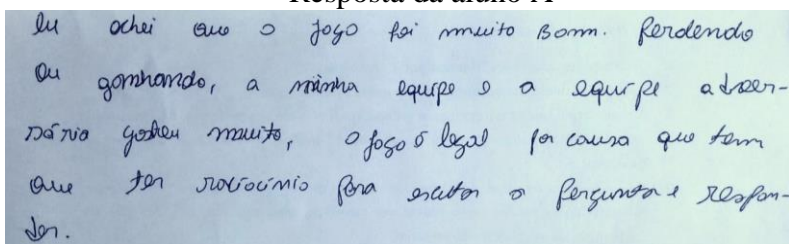 Resposta da aluno A
Eu achei que o jogo foi muito Bom. Perdendo
ou ganhando, a minha equipe e a equipe adver-
sária gostou muito, o jogo é legal por causa que tem
que ter raciocínio para escutar a pergunta e respon-
der.